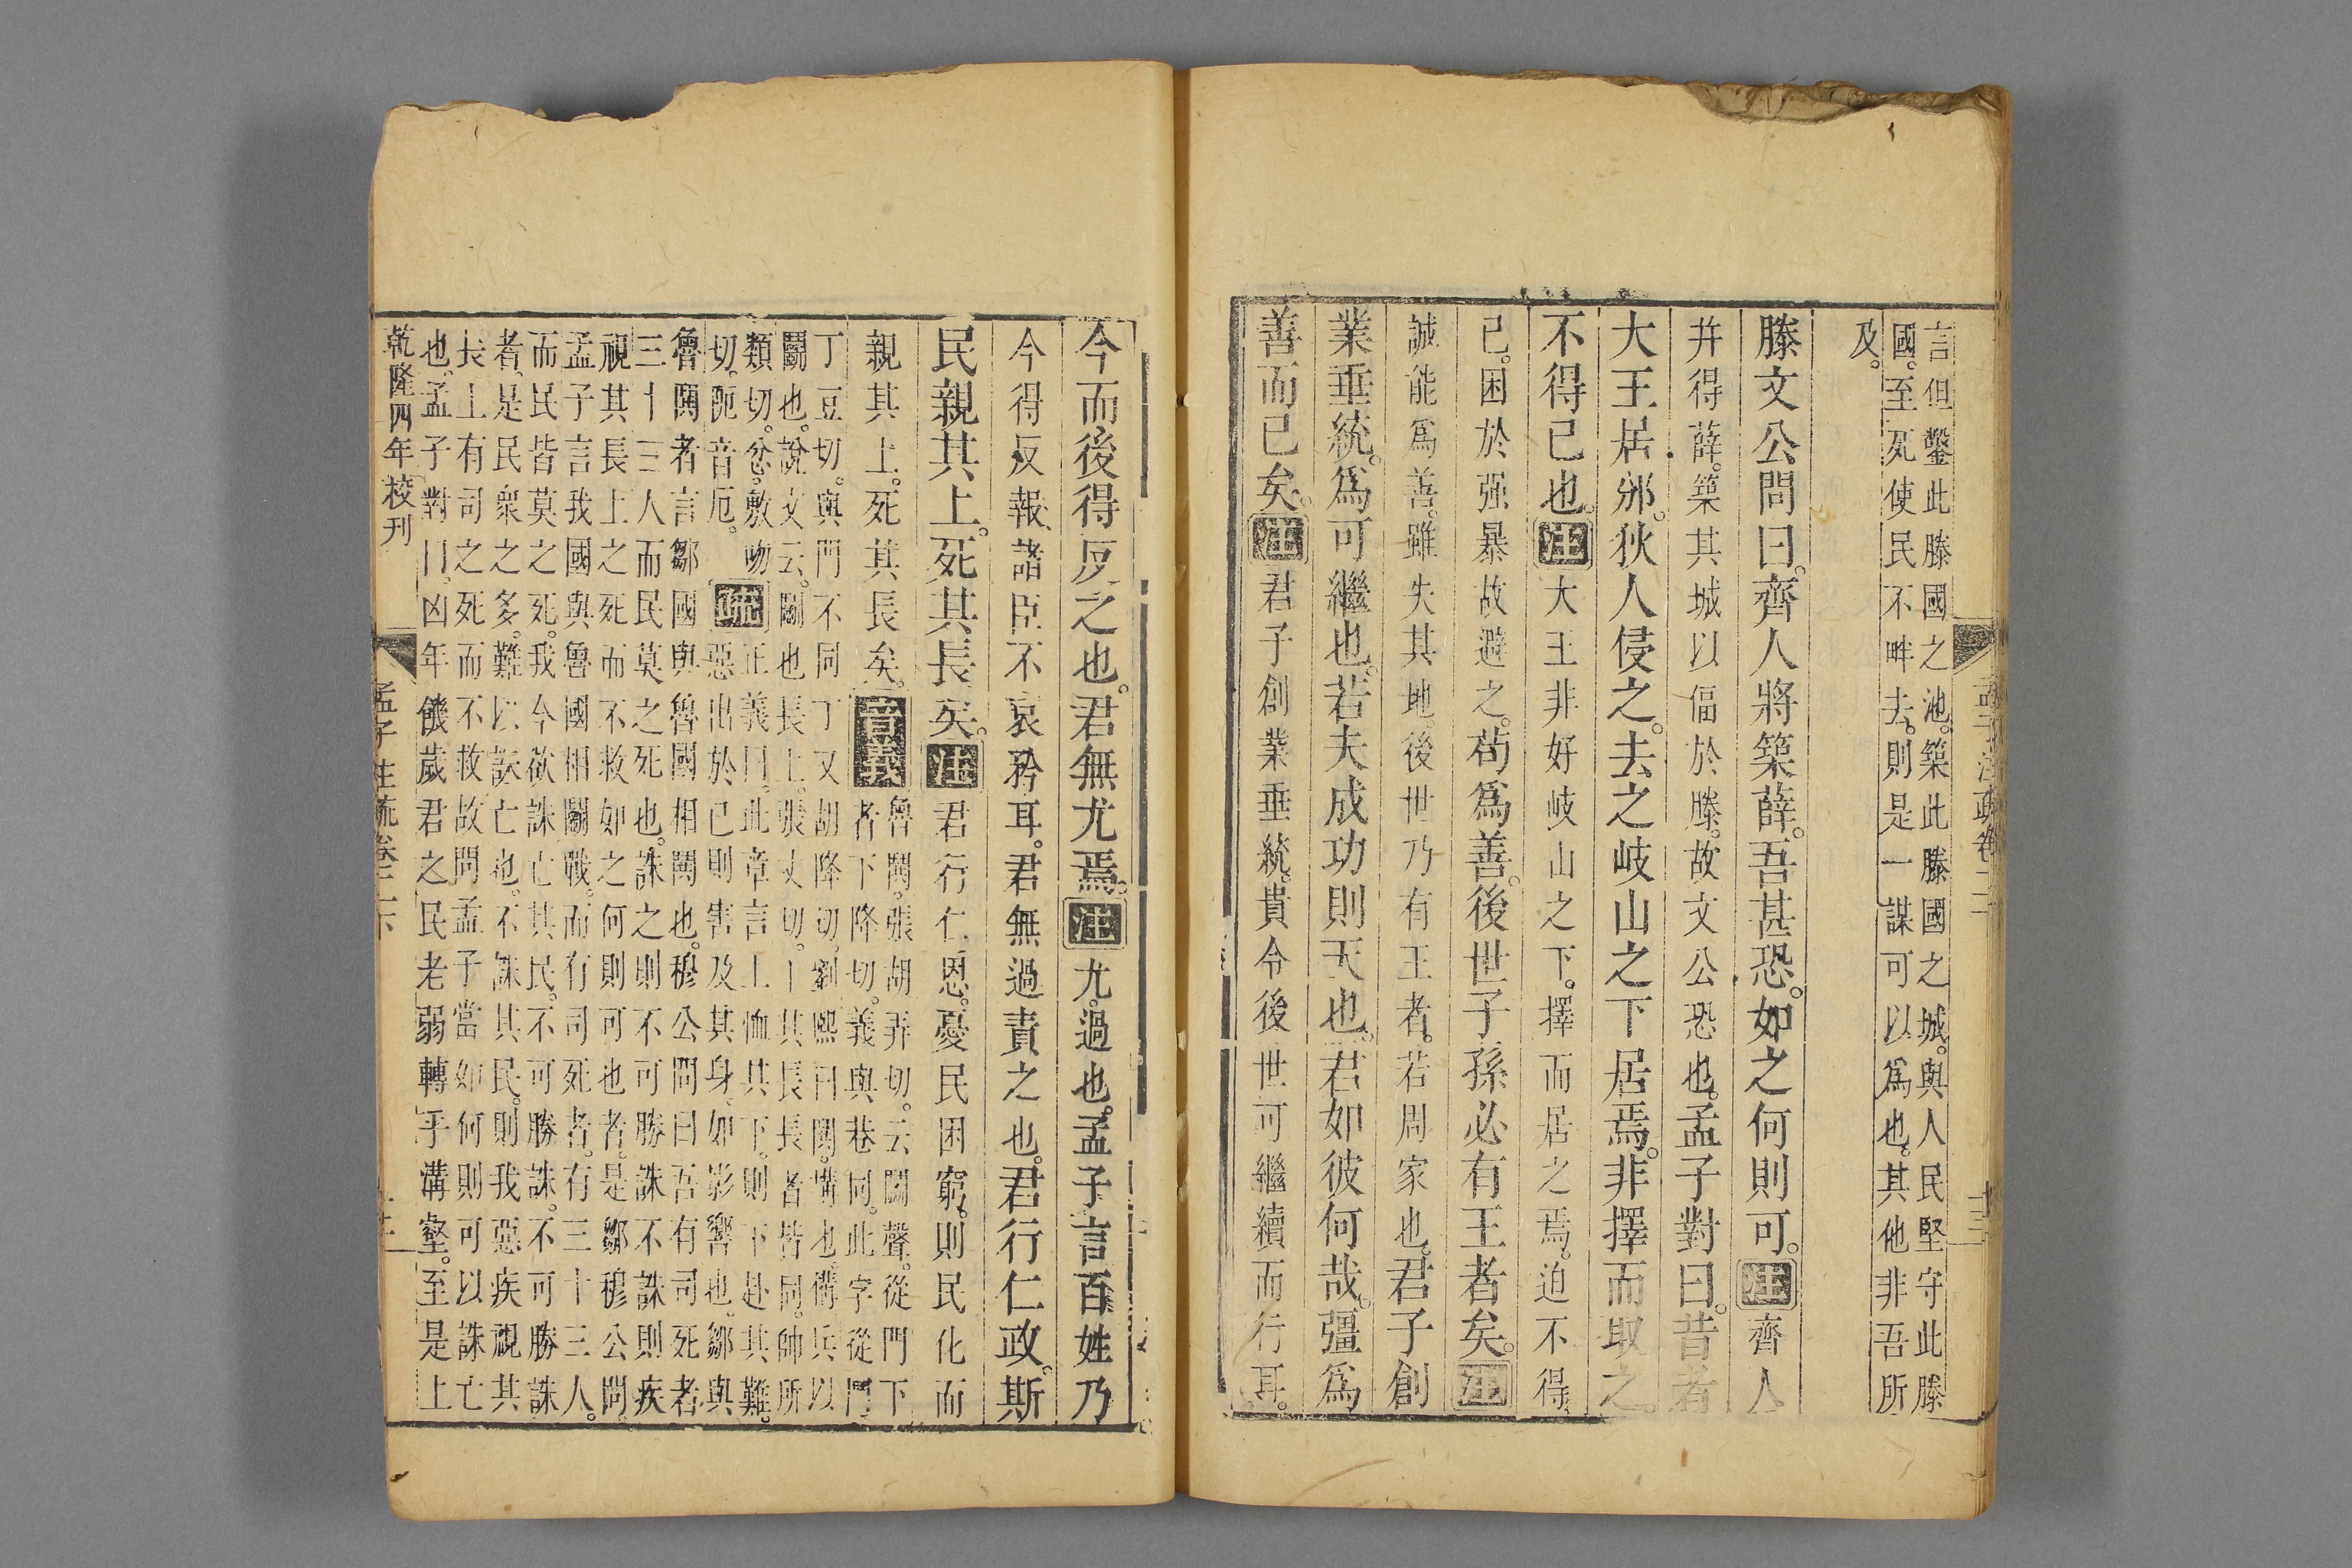 言但鑿此滕國之池。築此滕國之城。與人民堅守此滕
國。至死使民不畔去。則是一謀可以爲也。其他非吾所
及。
滕文公問曰。齊人將築薛。吾甚恐。如之何則可。注齊人
幷得薛。築其城以偪於滕。故文公恐也。孟子對曰。昔者
大王居邠。狄人侵之。去之岐山之下居焉。非擇而取之。
不得已也。注大王非好岐山之下。擇而居之焉。迫不得
已。困於强暴故避之。苟爲善。後世子孫必有王者矣。注
誠能爲善。雖失其地。後世乃有王者。若周家也。君子創
業垂統。爲可繼也。若夫成功則天也。君如彼何哉。彊爲
善而已矣。注君子創業垂統。貴令後世可繼續而行耳。
孟子注疏卷二下
十三
今而後得反之也。君無尤焉。注尤。過也。孟子言百姓乃
今得反報諸臣不哀矜耳。君無過責之也。君行仁政。斯
民親其上。死其長矣。注君行仁恩。憂民困窮。則民化而
親其上。死其長矣。音義
魯鬨。張胡弄切。云鬭聲。從門下
者下降切。義與巷同。此字從鬥
丁豆切。與門不同丁又胡降切。劉熙曰鬨。構也。構兵以
鬭也。說文云。鬭也長上。張丈切。下其長長者皆同。帥所
類切。忿。敷吻
切。阨音厄。
疏
正義曰。此章言上恤其下。則下赴其難。
惡出於己則害及其身。如影響也。鄒與
魯鬨者言鄒國與魯國相鬨也。穆公問曰吾有司死者
三十三人而民莫之死也。誅之則不可勝誅不誅則疾
視其長上之死而不救如之何則可也者。是鄒穆公問。
孟子言我國與魯國相鬭戰。而有司死者。有三十三人。
而民皆莫之死。我今欲誅亡其民。不可勝誅。不可勝誅
者。是民衆之多。難以誅亡也。不誅其民。則我惡疾視其
長上有司之死而不救故問孟子當如何則可以誅亡
也。孟子對曰。凶年饑歲君之民老弱轉乎溝壑。至是上
乾隆四年校刊
孟子注疏卷二下